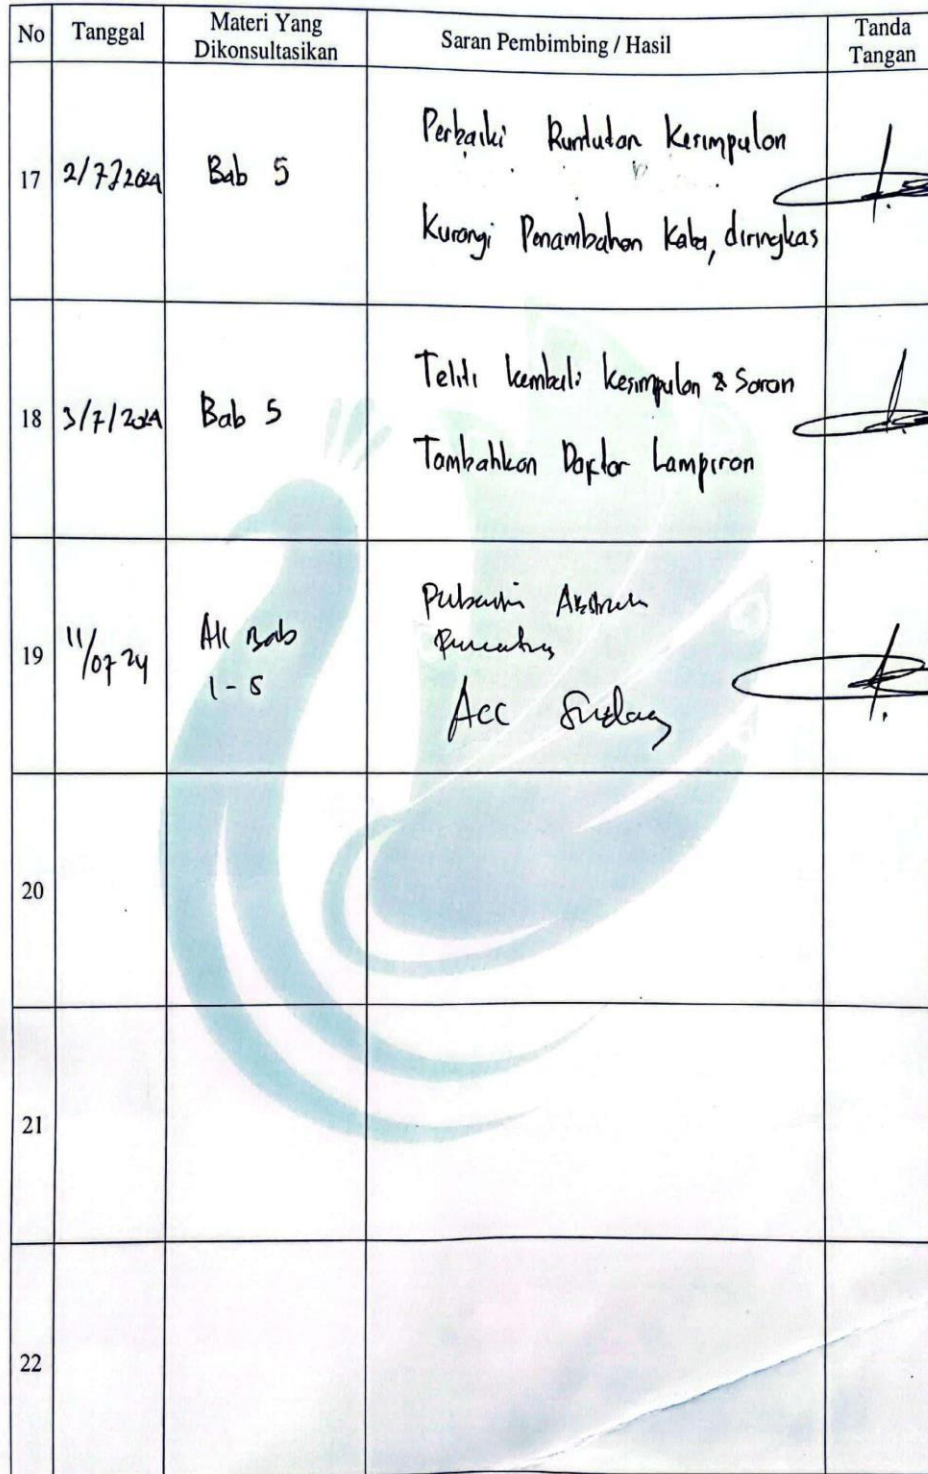 No Tanggal Materi Yang Dikonsultasikan Saran Pembimbing / Hasil Tanda Tangan
17 2/7/2024 Bab 5 Perbaiki Runtutan Kesimpulan
Kurangi Penambahan Kata, diringkas
18 3/7/2024 Bab 5 Teliti kembali kesimpulan & Saran
Tambahkan Daftar Lampiran
19 11/07 24 Bab
1-5
Acc Sidang
20
21
22